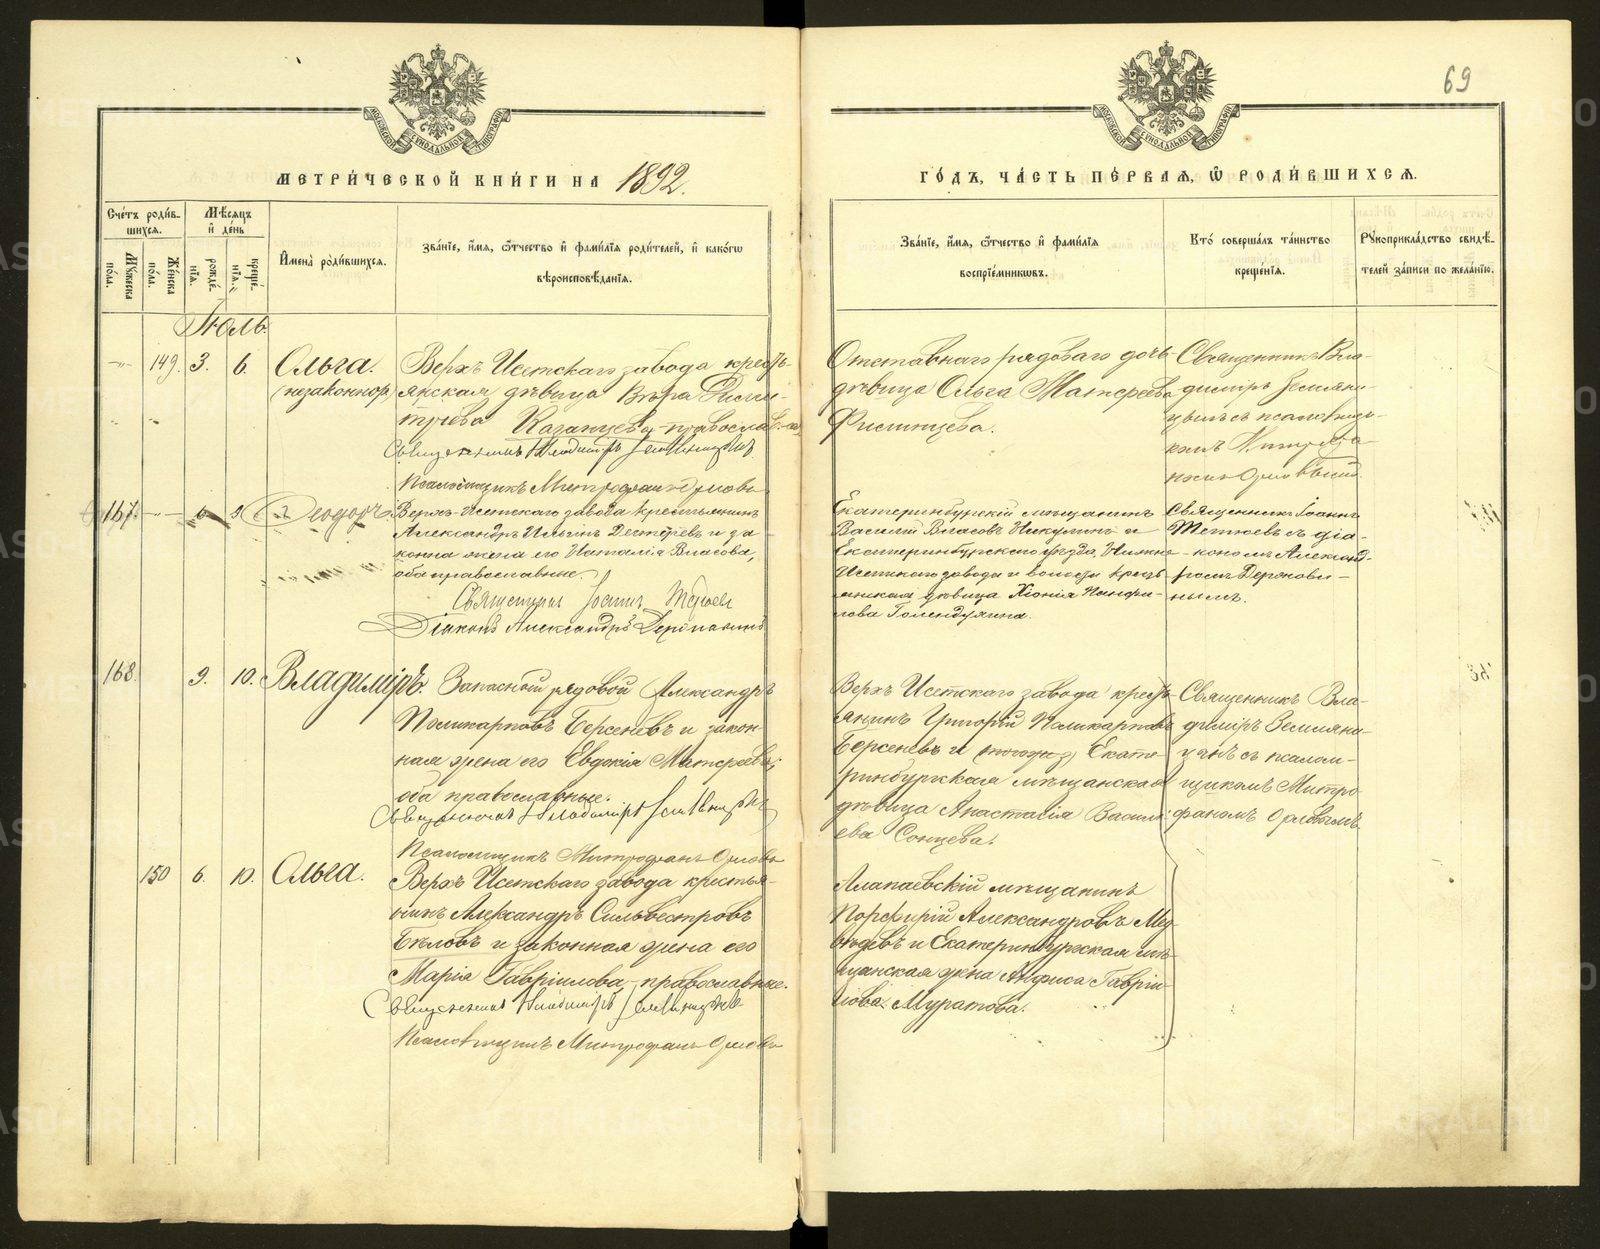 69
МОСКОВСКОЙ СѴНОДАЛЬНОЙ ТИПОГРАФІИ
МЕТРИ́ЧЕСКОЙ КНИ́ГИ НА 1892.
Сче́тъ роди́в-
шихсѧ.
Мѣ́сѧцъ
и҆ де́нь
Мꙋ́жеска
по́ла.
Же́нска
по́ла.
рожде́-
нїѧ.
креще́-
нїѧ.
И҆мена̀ роди́вшихсѧ.
Зва́нїе, и҆́мѧ, ѻ҆́тчество и҆ фамѝлїѧ роди́телей, и҆ како́гѡ
вѣроисповѣ́данїѧ.
Іюль.
149. 3. 6. Ольга.
(незаконнор.)
Верхъ Исетскаго завода кресть-
янская дѣвица Вѣра Дими-
тріева Казанцева, православная
Священникъ Владиміръ Земляницынъ
Псаломщикъ Митрофанъ Орловъ
167. 6 9 Ѳеодоръ.
Верхъ-Исетскаго завода крестьянинъ
Александръ Ильинъ Дегтяревъ и за
конна жена его Наталія Власова,
оба православные.
Священникъ Іоаннъ
Діаконъ Александръ Державинъ
168 9. 10. Владиміръ.
Запасный рядовой Александръ
Поликарповъ Берсеневъ и закон-
ная жена его Евдокія Матѳеева;
оба православные.
Священникъ Владиміръ Земляницынъ
Псаломщикъ Митрофанъ Орловъ
150 6. 10. Ольга.
Верхъ Исетскаго завода крестья-
нинъ Александръ Сильвестровъ
Бѣловъ и законная жена его
Марія Гавріилова, православные.
Священникъ Владиміръ Земляницынъ
Псаломщикъ Митрофанъ Орловъ
МОСКОВСКОЙ СѴНОДАЛЬНОЙ ТИПОГРАФІИ
ГО́ДЪ, ЧА́СТЬ ПЕ́РВАѦ, Ѡ҆ РОДИ́ВШИХСѦ.
Зва́нїе, и҆́мѧ, ѻ҆́тчество и҆ фамѝлїѧ
воспрїе́мникѡвъ.
Кто̀ соверша́лъ та́инство
креще́нїѧ.
Рꙋкоприкла́дство свидѣ́-
телей за́писи по жела́нїю.
Отставнаго рядоваго дочь
дѣвица Ольга Матѳеева
Филинцева.
Священникъ Вла-
диміръ Земляни-
цынъ съ псаломщи-
комъ Митрофа-
номъ Орловымъ.
Екатеринбургскій мѣщанинъ
Василій Власовъ Никулинъ и
Екатеринбургскаго уѣзда, Нижне-
Исетскаго завода и волости кресть-
янская дѣвица Хіонія Панфи-
лова Голендухина.
Священникъ Іоаннъ
съ діа-
кономъ Александ-
ромъ Держави-
нымъ.
Верхъ Исетскаго завода кресть-
янинъ Григорій Поликарповъ
Берсеневъ и Екате-
ринбургская мѣщанская
дѣвица Анастасія Василь-
ева Сонцева.
Священникъ Вла-
диміръ Земляни-
цынъ съ псалом-
щикомъ Митро-
фаномъ Орловымъ.
Алапаевскій мѣщанинъ
Порфирій Александровъ Мед-
вѣдевъ и Екатеринбургская мѣ-
щанская жена Анфиса Гаврі-
илова Муратова.